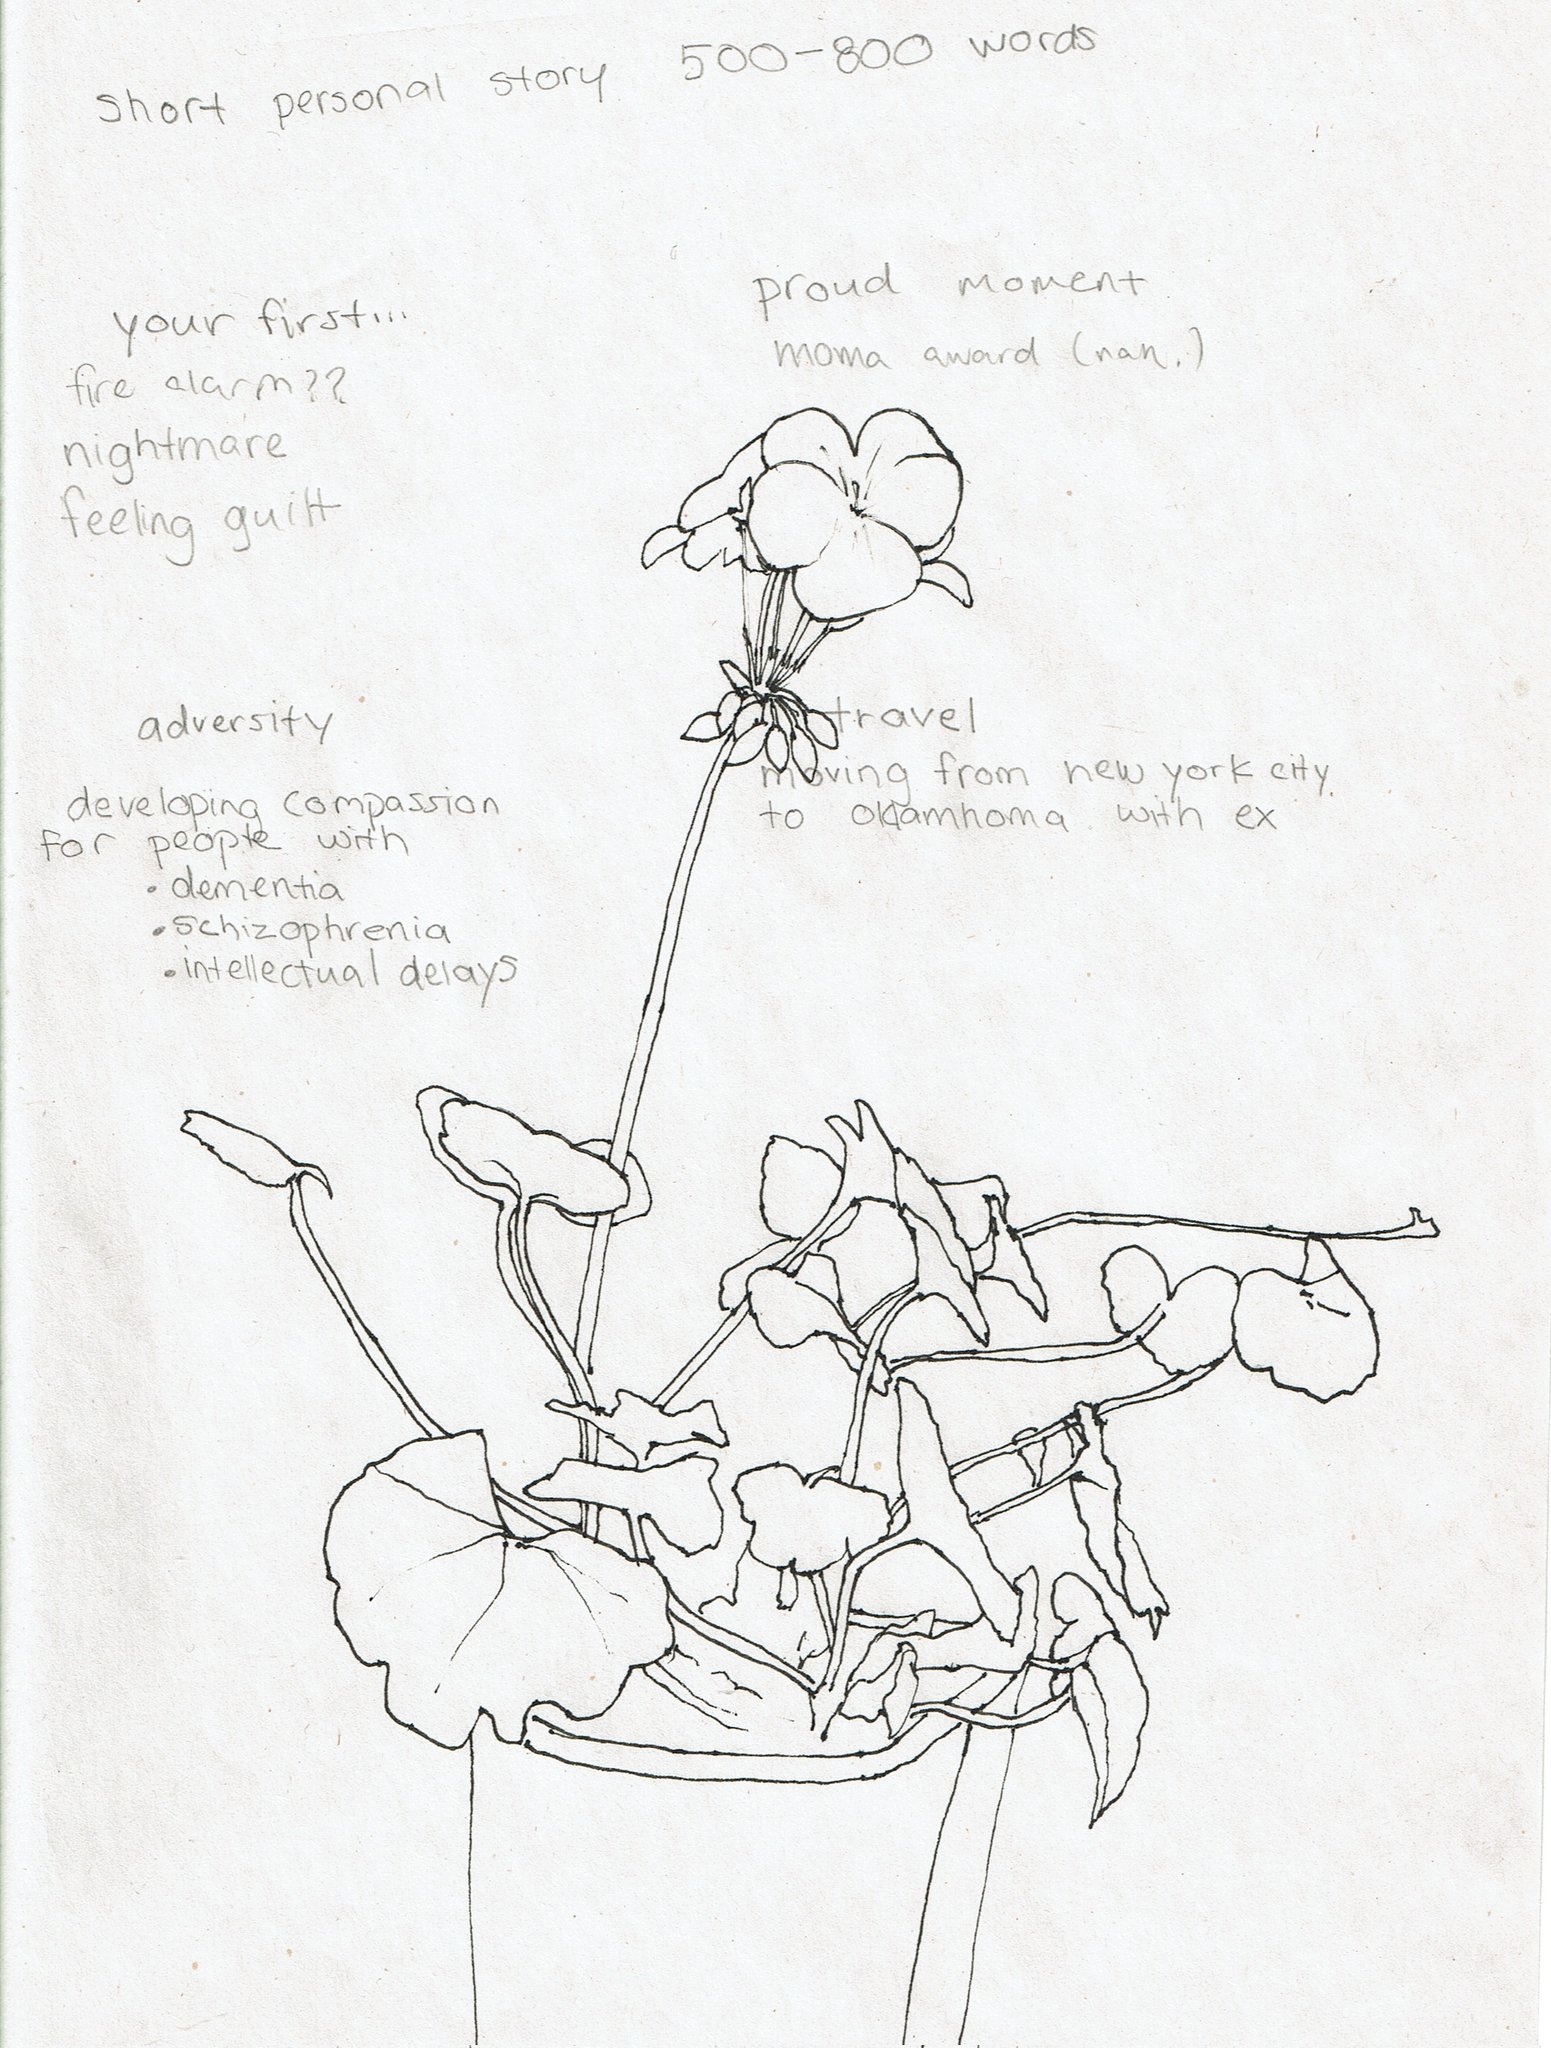 short personal story 500-800 words
your first...
fire alarm??
nightmare
feeling guilt
proud moment
moma award (nah.)
adversity
developing compassion
for people with
• dementia
• schizophrenia
• intellectual delays
travel
moving from new york city
to oklamhoma with ex